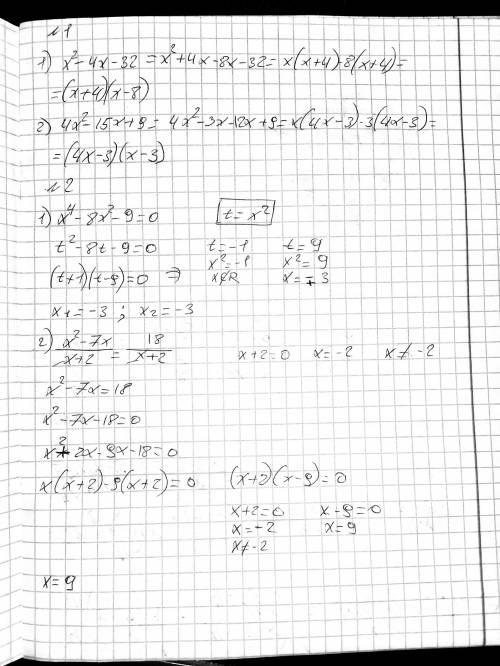 №1
1) x²-4x-32 = x²+4x-8x-32= x(x+4)-8(x+4)=
=(x+4)(x-8)
2) 4x²-15x+9= 4x²-3x-12x+9=x(4x-3)-3(4x-3)=
=(4x-3)(x-3)
№2
1) x⁴-8x²-9=0 t=x²
t²-8t-9=0 t=-1 t=9
(t+1)(t-9)=0 ⇒ x²=-1 x²=9
x∉R x=∓3
x₁=-3 ; x₂=-3
2) (x²-7x)/(x+2) = 18/(x+2) x+2=0 x=-2 x≠-2
x²-7x=18
x²-7x-18=0
x²+2x-9x-18=0
x(x+2)-9(x+2)=0 (x+2)(x-9)=0
x+2=0 x-9=0
x=-2 x=9
x≠-2
x=9